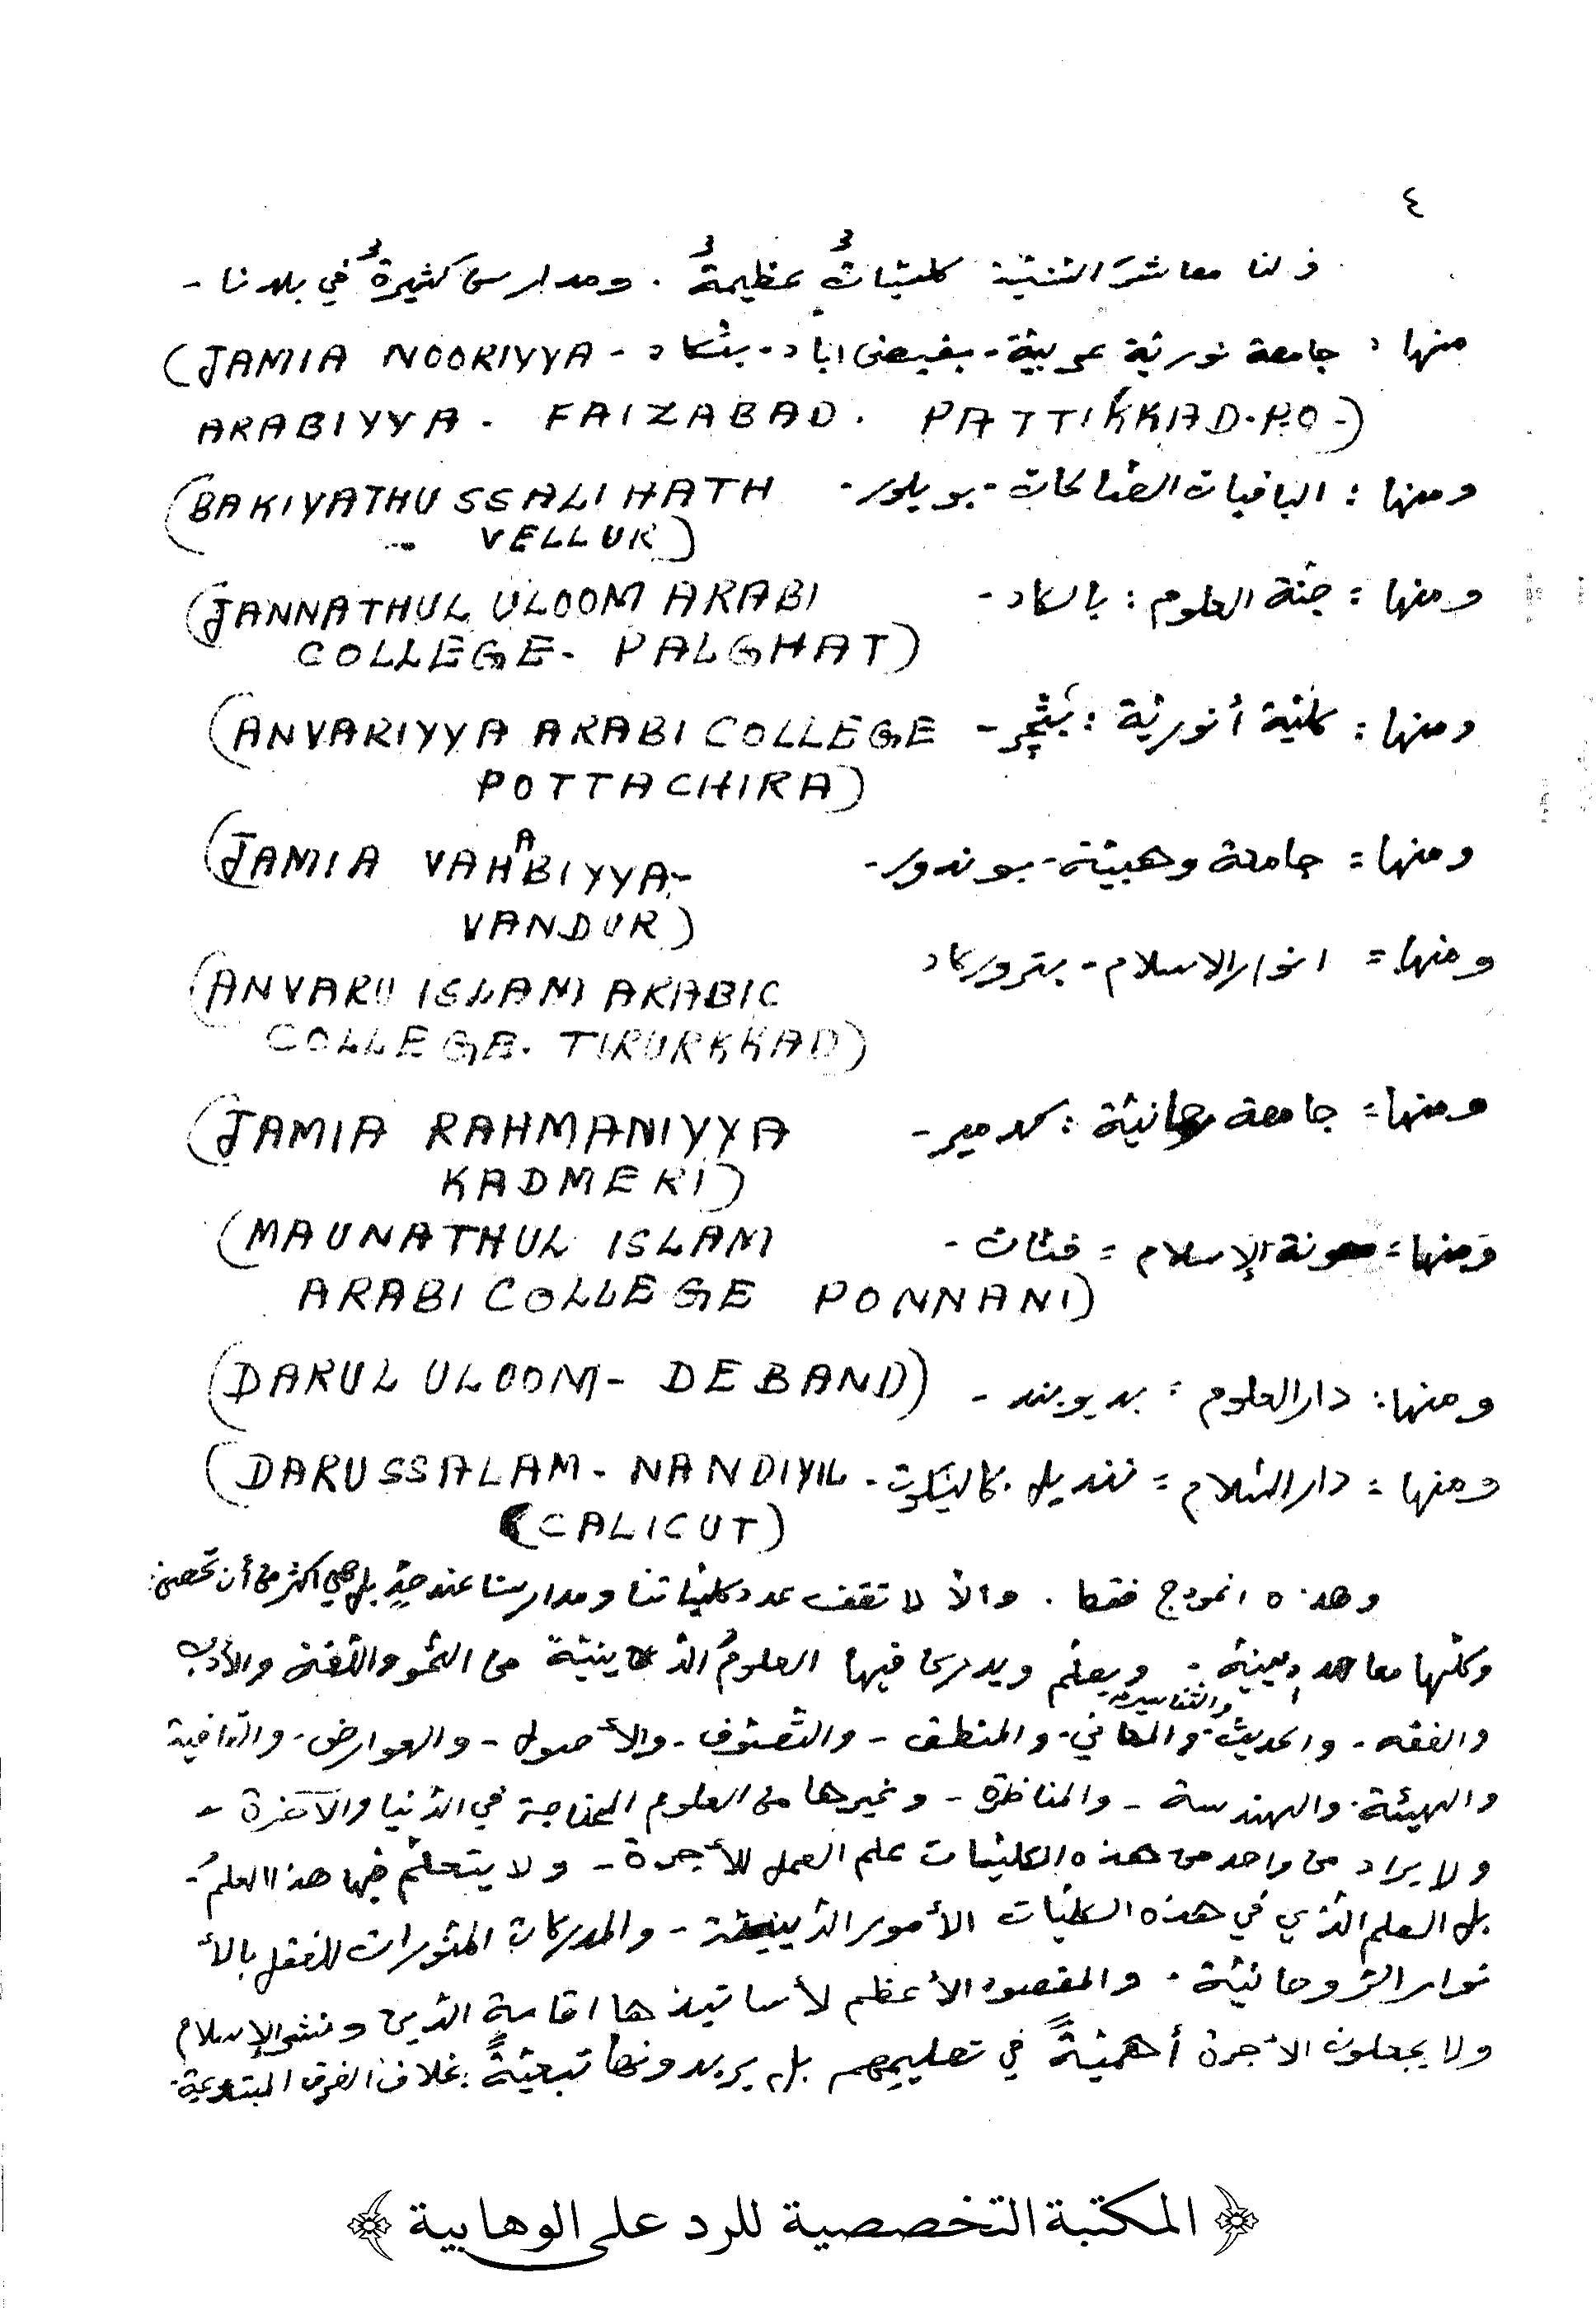 ٤
ولنا معاشرَ السّنيّة كليّاتٌ عظيمةٌ . ومدارس كثيرةٌ في بلدنا -
منها : جامعة نوريّة عربيّة - بفيض اباد - بتّكاد - (JAMIA NOORIYYA
ARABIYYA - FAIZABAD . PATTIKKAD.P.O-)
ومنها : الباقيات الصّالحات - بويلور - (BAKIYATHUSSALIHATH
VELLUR)
ومنها : جنّة العلوم : بالكاد - (JANNATHUL ULOOM ARABI
COLLEGE - PALGHAT)
ومنها : كليّة أنوريّة : - (ANVARIYYA ARABI COLLEGE
POTTACHIRA)
ومنها : جامعة وهبيّة - بوندور - (JAMIA VAHABIYYA -
VANDUR)
ومنها = انوار الاسلام - بتروركاد (ANVARU ISLAM ARABIC
COLLEGE. TIRURKKAD)
ومنها = جامعة رحمانيّة : كدمير - (JAMIA RAHMANIYYA
KADMERI)
ومنها = معونة الإسلام = فنّان - (MAUNATHUL ISLAM
ARABI COLLEGE PONNANI)
ومنها : دار العلوم : بديوبند - (DARUL ULOOM - DEBAND)
ومنها : دار السّلام = نندیل . كاليكوت - (DARUSSALAM - NANDIYIL
(CALICUT)
وهذه انموذج فقط . والاّ لا تقف عدد كليّاتنا ومدارسنا عند حدٍّ بل هي اكثر من أن تحصى :
وكلّها معاهد دينية - ويعلّم ويدرس فيها العلومُ الدّينيّة من النّحو واللّغة والأدب
والفقه - والحديث والتّفاسير والمعاني - والمنطق - والتّصوّف - والأصول - والعوارض - والقافية
والهيئة - والهندسة - والمناظرة - وغيرها من العلوم المحتاجة في الدّنيا والآخرة -
ولا يراد من واحد من هذه الكليّات علم العمل للأجرة - ولا يتعلّم فيها هذا العلمُ -
بل العلم الذّي في هذه الكليّات الأمور الدّينيّة - والمدركات المنوّرات للعقل بالأ
نوار الرّوحانيّة - والمقصود الأعظم لأساتيذها اقامة الدّين ونشر الإسلام
ولا يجعلون الأجرة أهميّةً في تعليمهم بل يريدونها تبعيّةً بخلاف الفرق المبتدعة -
﴿ المكتبة التخصصية للرد على الوهابية ﴾